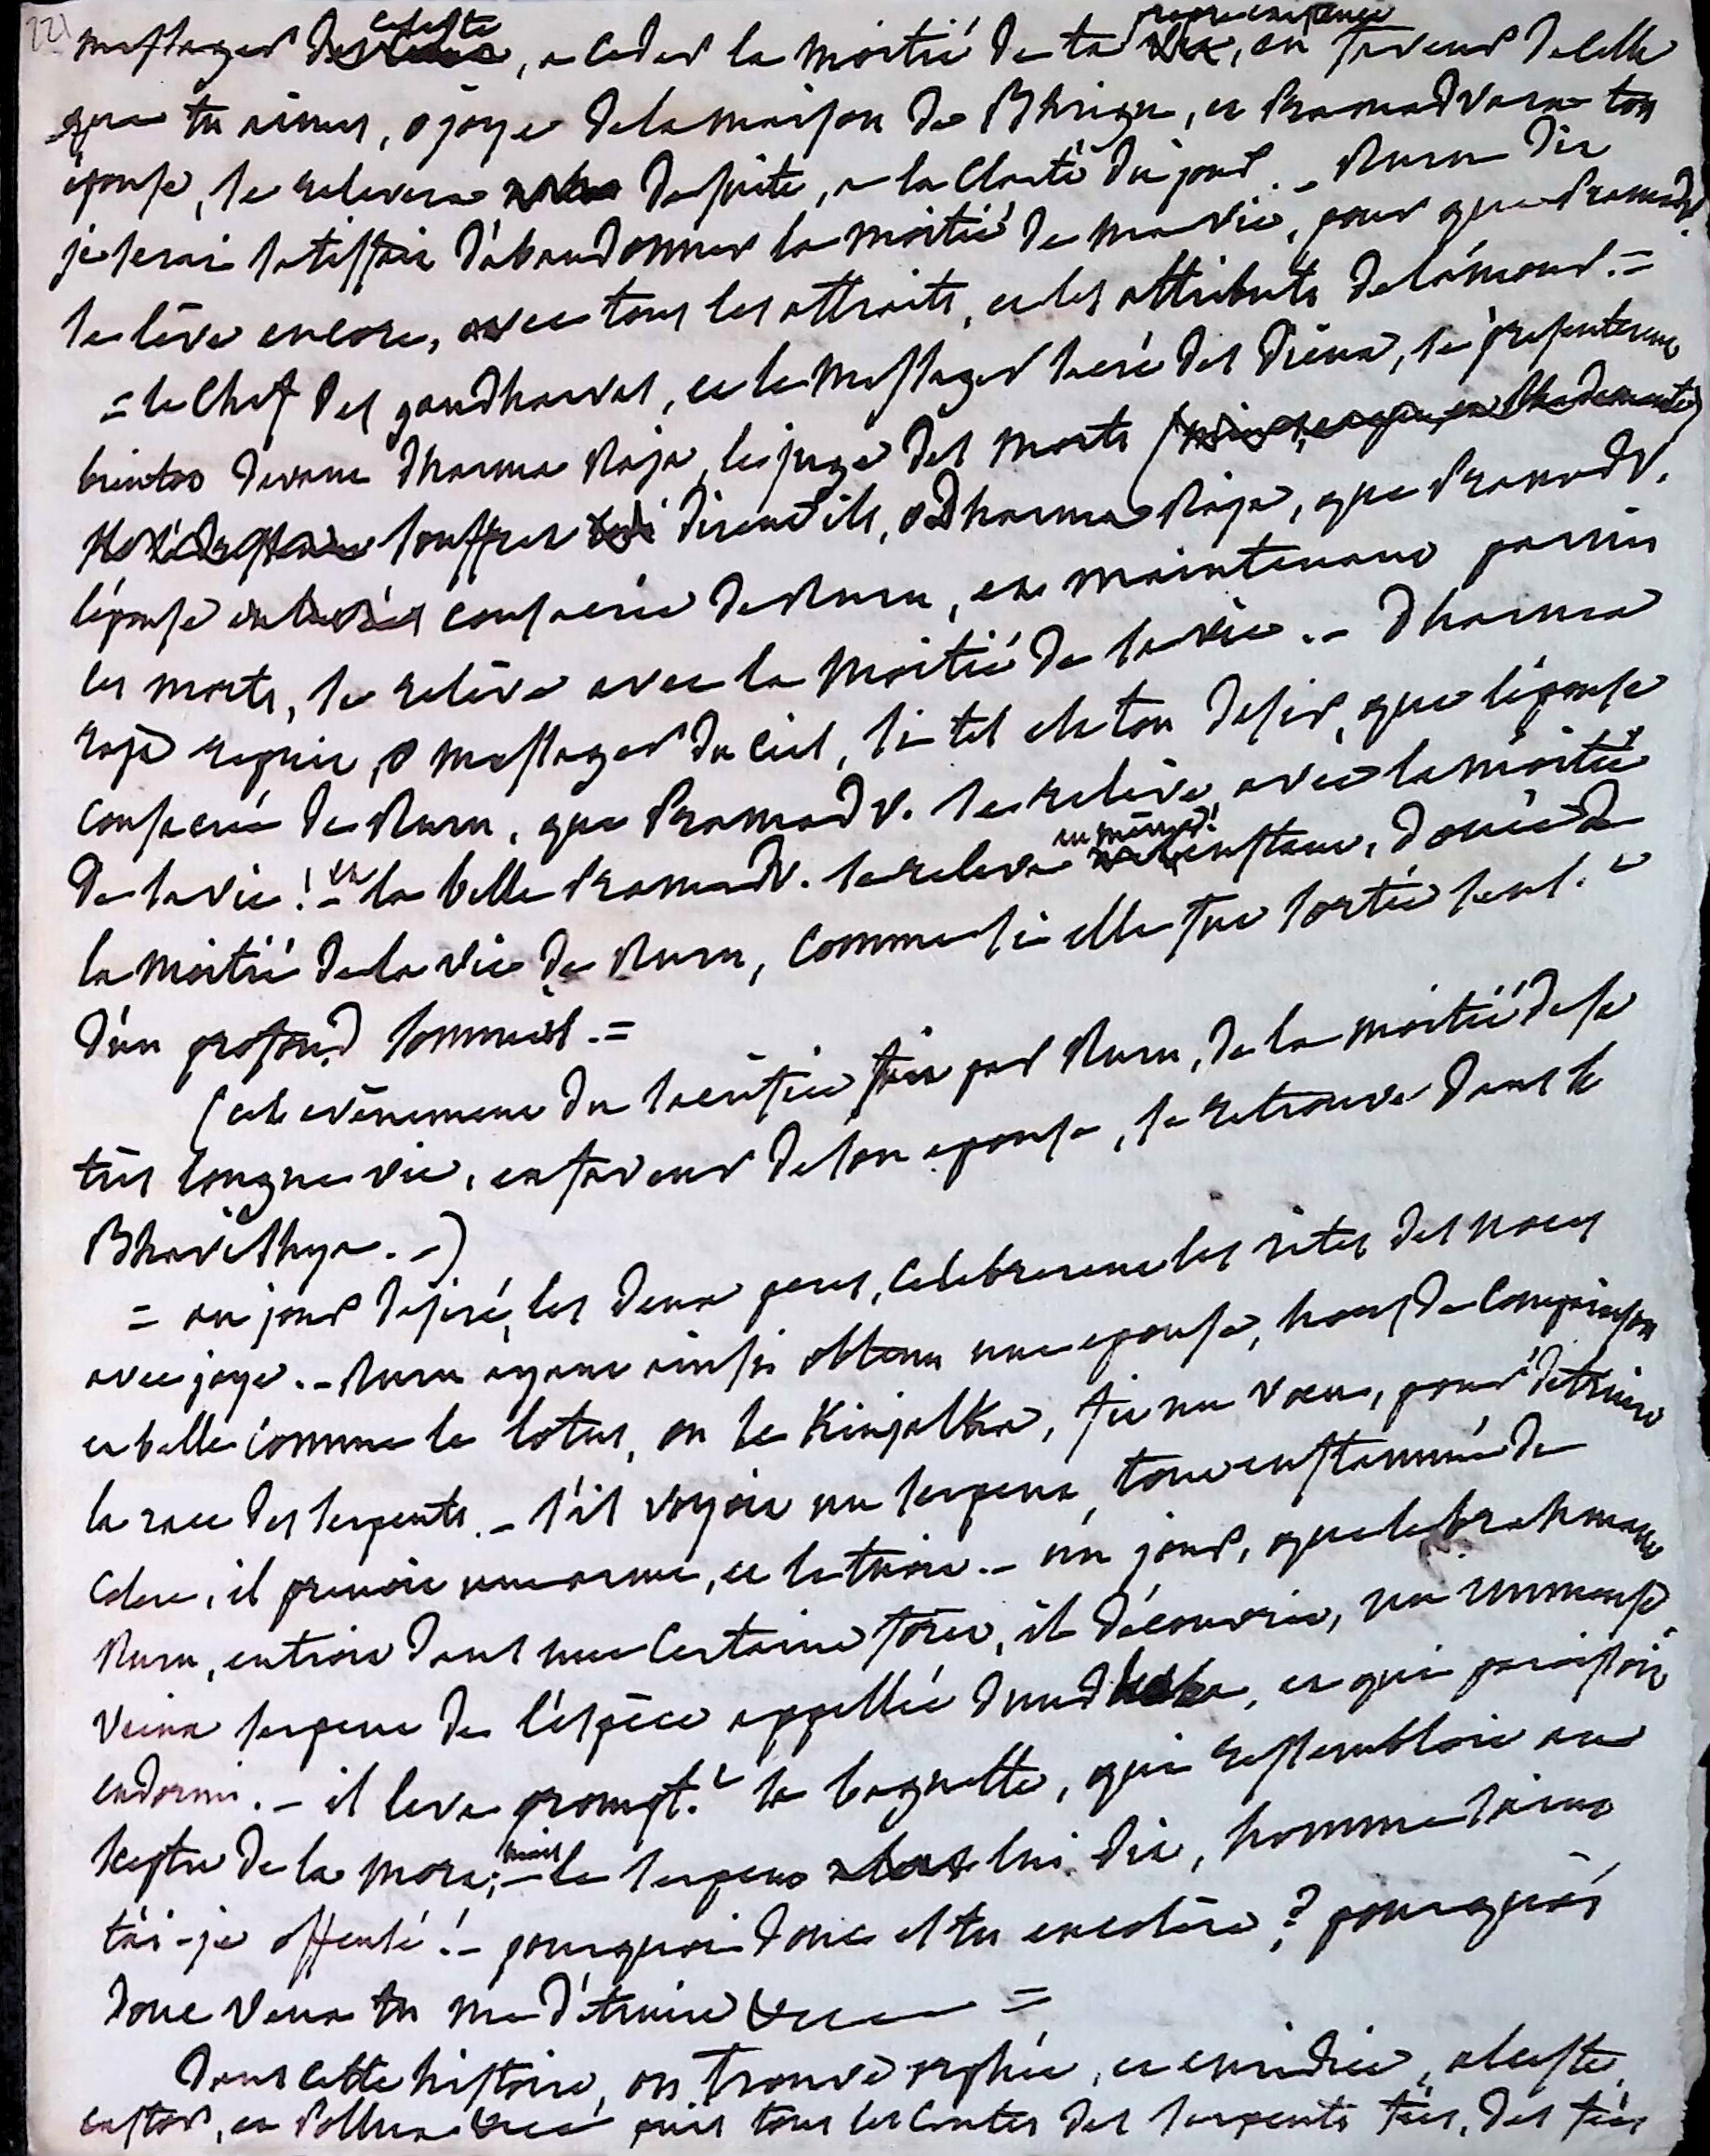 22)
messager celeste, a ceder la moitié de ta propre existence, en faveur de celle
que tu aimes, o joye de la maison de Bhrigu, et Pramadvara ton
épouse, se relevera de suite, a la clarté du jour. – Ruru dit
je serai satisfait d'abandonner la moitié de ma vie, pour que Pramadv.
se léve encore, avec tous les attraits, et les attributs de l'amour. =
= le chef des gandharvas, et le messager sacré des dieux, se presenterent
bientot devant Dharma Raja, le juge des morts
souffres dirent ils, o Dharma Raja, que Pramadv.
l'épouse consacrée de Ruru, et maintenant parmi
les morts, se relève avec la moitié de sa vie. – Dharma
raja reprit, o messager du ciel, si tel est ton desir, que l'épouse
consacrée de Ruru, que Pramadv. se relève avec la moitié
de sa vie! – et la belle Pramadv. se releva au même instant, douée de
la moitié de la vie de Ruru, comme si elle fut sortie seul.t
d'un profond sommeil. =
(cet evènement du sacrifice fait par Ruru, de la moitié de sa
très longue vie, en faveur de son epouse, se retrouve dans le
Bhavishya. –)
= au jour desiré, les deux peres, celebrerent les rites des noces
avec joye. – Ruru ayant ainsi obtenu une epouse, hors de comparaison
et belle comme le lotus, ou le Kinjalka, fit un voeu, pour détruire
la race des serpents. – s'il voyait un serpent, tout enflammé de
colere, il prenoit une arme, et le tuoit. – un jour, que le brahmane
Ruru, entroit dans une certaine foret, il découvrit, un immense
vieux serpent de l'éspèce appellée dundhubha, et qui paroissoit
endormi. – il leva prompt.t sa baguette, qui ressembloit au
sceptre de la mort; – mais le serpent lui dit, homme saint
t'ai-je offensé! – pourquoi donc es tu en colère? pourquoi
donc veux tu me détruire &c =
Dans cette histoire, on trouve orphée, et euridice, alceste,
castor, et Pollux &c puis tous les contes des serpents fées, des fées